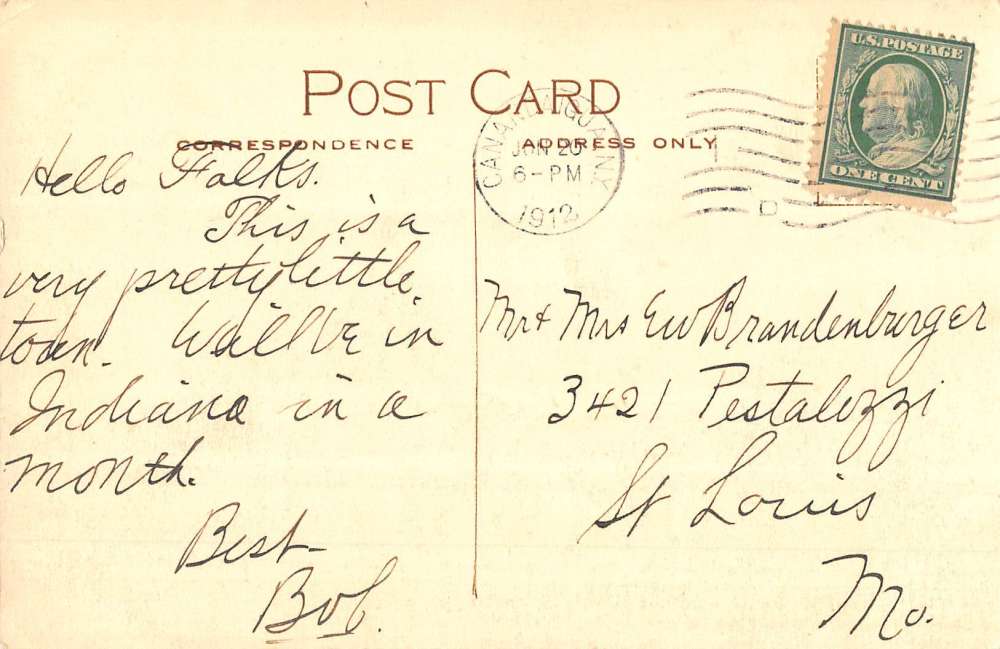 POST CARD
CORRESPONDENCE
ADDRESS ONLY
U.S. POSTAGE
ONE CENT
CANANDAIGUA N.Y.
JUN 20
6-PM
1912
D
Hello Folks.
This is a
very pretty little
town. Will be in
Indiana in a
month.
Best
Bob.
Mr & Mrs EW Brandenburger
3421 Pestalozzi
St Louis
Mo.